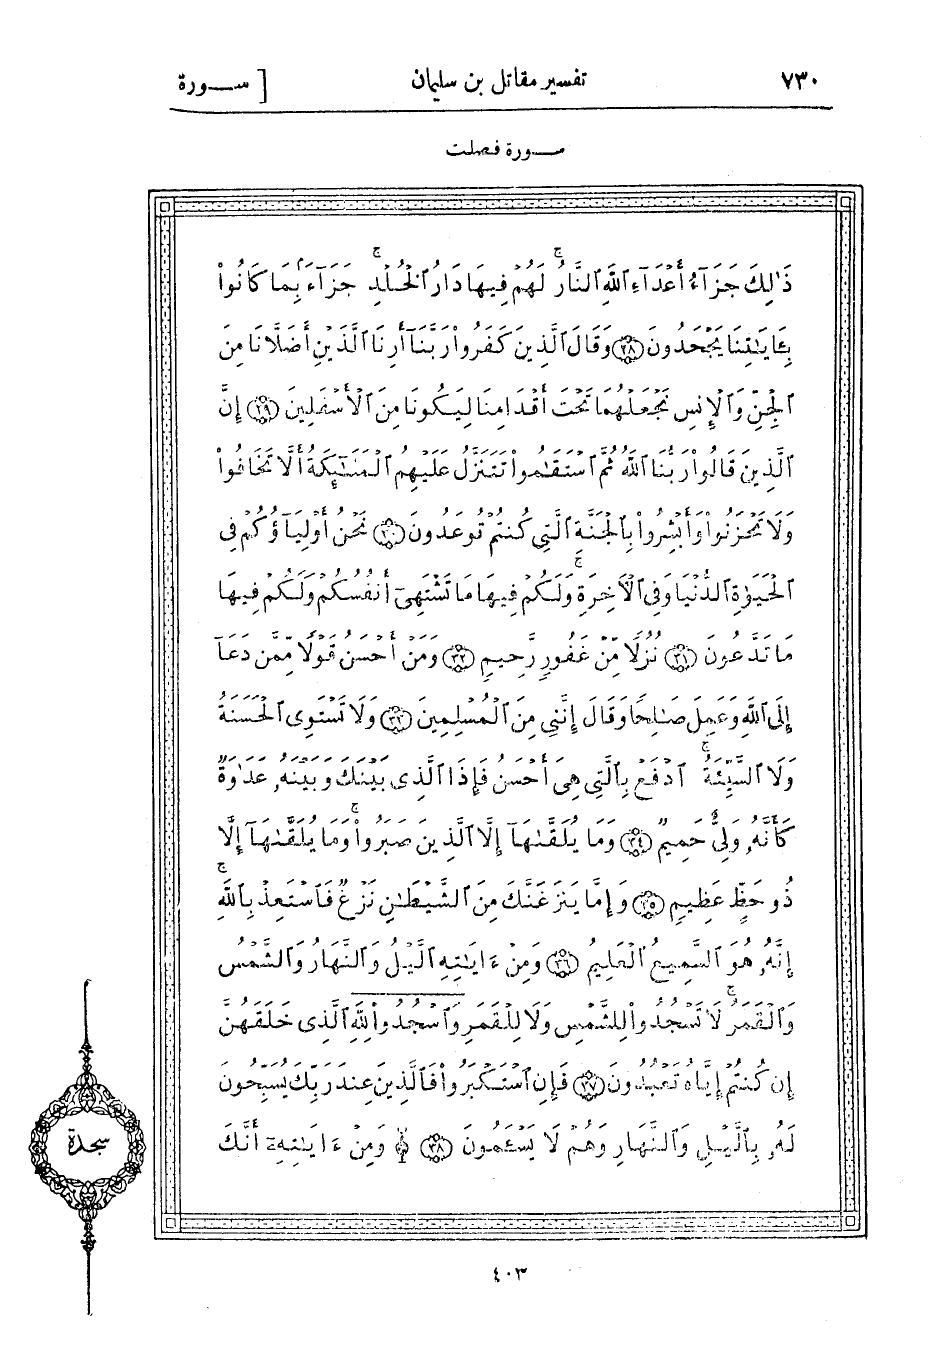 ٧٣٠ تفسير مقاتل بن سليمان [ ســورة
ســورة فصلت
ذَٰلِكَ جَزَآءُ أَعْدَآءِ ٱللَّهِ ٱلنَّارُ ۖ لَهُمْ فِيهَا دَارُ ٱلْخُلْدِ ۖ جَزَآءًۢ بِمَا كَانُوا۟
بِـَٔايَـٰتِنَا يَجْحَدُونَ ﴿٢٨﴾ وَقَالَ ٱلَّذِينَ كَفَرُوا۟ رَبَّنَآ أَرِنَا ٱلَّذَيْنِ أَضَلَّانَا مِنَ
ٱلْجِنِّ وَٱلْإِنسِ نَجْعَلْهُمَا تَحْتَ أَقْدَامِنَا لِيَكُونَا مِنَ ٱلْأَسْفَلِينَ ﴿٢٩﴾ إِنَّ
ٱلَّذِينَ قَالُوا۟ رَبُّنَا ٱللَّهُ ثُمَّ ٱسْتَقَـٰمُوا۟ تَتَنَزَّلُ عَلَيْهِمُ ٱلْمَلَـٰٓئِكَةُ أَلَّا تَخَافُوا۟
وَلَا تَحْزَنُوا۟ وَأَبْشِرُوا۟ بِٱلْجَنَّةِ ٱلَّتِى كُنتُمْ تُوعَدُونَ ﴿٣٠﴾ نَحْنُ أَوْلِيَآؤُكُمْ فِى
ٱلْحَيَوٰةِ ٱلدُّنْيَا وَفِى ٱلْـَٔاخِرَةِ ۖ وَلَكُمْ فِيهَا مَا تَشْتَهِىٓ أَنفُسُكُمْ وَلَكُمْ فِيهَا
مَا تَدَّعُونَ ﴿٣١﴾ نُزُلًا مِّنْ غَفُورٍ رَّحِيمٍ ﴿٣٢﴾ وَمَنْ أَحْسَنُ قَوْلًا مِّمَّن دَعَآ
إِلَى ٱللَّهِ وَعَمِلَ صَـٰلِحًا وَقَالَ إِنَّنِى مِنَ ٱلْمُسْلِمِينَ ﴿٣٣﴾ وَلَا تَسْتَوِى ٱلْحَسَنَةُ
وَلَا ٱلسَّيِّئَةُ ۚ ٱدْفَعْ بِٱلَّتِى هِىَ أَحْسَنُ فَإِذَا ٱلَّذِى بَيْنَكَ وَبَيْنَهُۥ عَدَٰوَةٌ
كَأَنَّهُۥ وَلِىٌّ حَمِيمٌ ﴿٣٤﴾ وَمَا يُلَقَّىٰهَآ إِلَّا ٱلَّذِينَ صَبَرُوا۟ ۖ وَمَا يُلَقَّىٰهَآ إِلَّا
ذُو حَظٍّ عَظِيمٍ ﴿٣٥﴾ وَإِمَّا يَنزَغَنَّكَ مِنَ ٱلشَّيْطَـٰنِ نَزْغٌ فَٱسْتَعِذْ بِٱللَّهِ ۖ
إِنَّهُۥ هُوَ ٱلسَّمِيعُ ٱلْعَلِيمُ ﴿٣٦﴾ وَمِنْ ءَايَـٰتِهِ ٱلَّيْلُ وَٱلنَّهَارُ وَٱلشَّمْسُ
وَٱلْقَمَرُ ۚ لَا تَسْجُدُوا۟ لِلشَّمْسِ وَلَا لِلْقَمَرِ وَٱسْجُدُوا۟ لِلَّهِ ٱلَّذِى خَلَقَهُنَّ
إِن كُنتُمْ إِيَّاهُ تَعْبُدُونَ ﴿٣٧﴾ فَإِنِ ٱسْتَكْبَرُوا۟ فَٱلَّذِينَ عِندَ رَبِّكَ يُسَبِّحُونَ
لَهُۥ بِٱلَّيْلِ وَٱلنَّهَارِ وَهُمْ لَا يَسْـَٔمُونَ ۩ ﴿٣٨﴾ وَمِنْ ءَايَـٰتِهِۦٓ أَنَّكَ
سجدة
٤٠٣